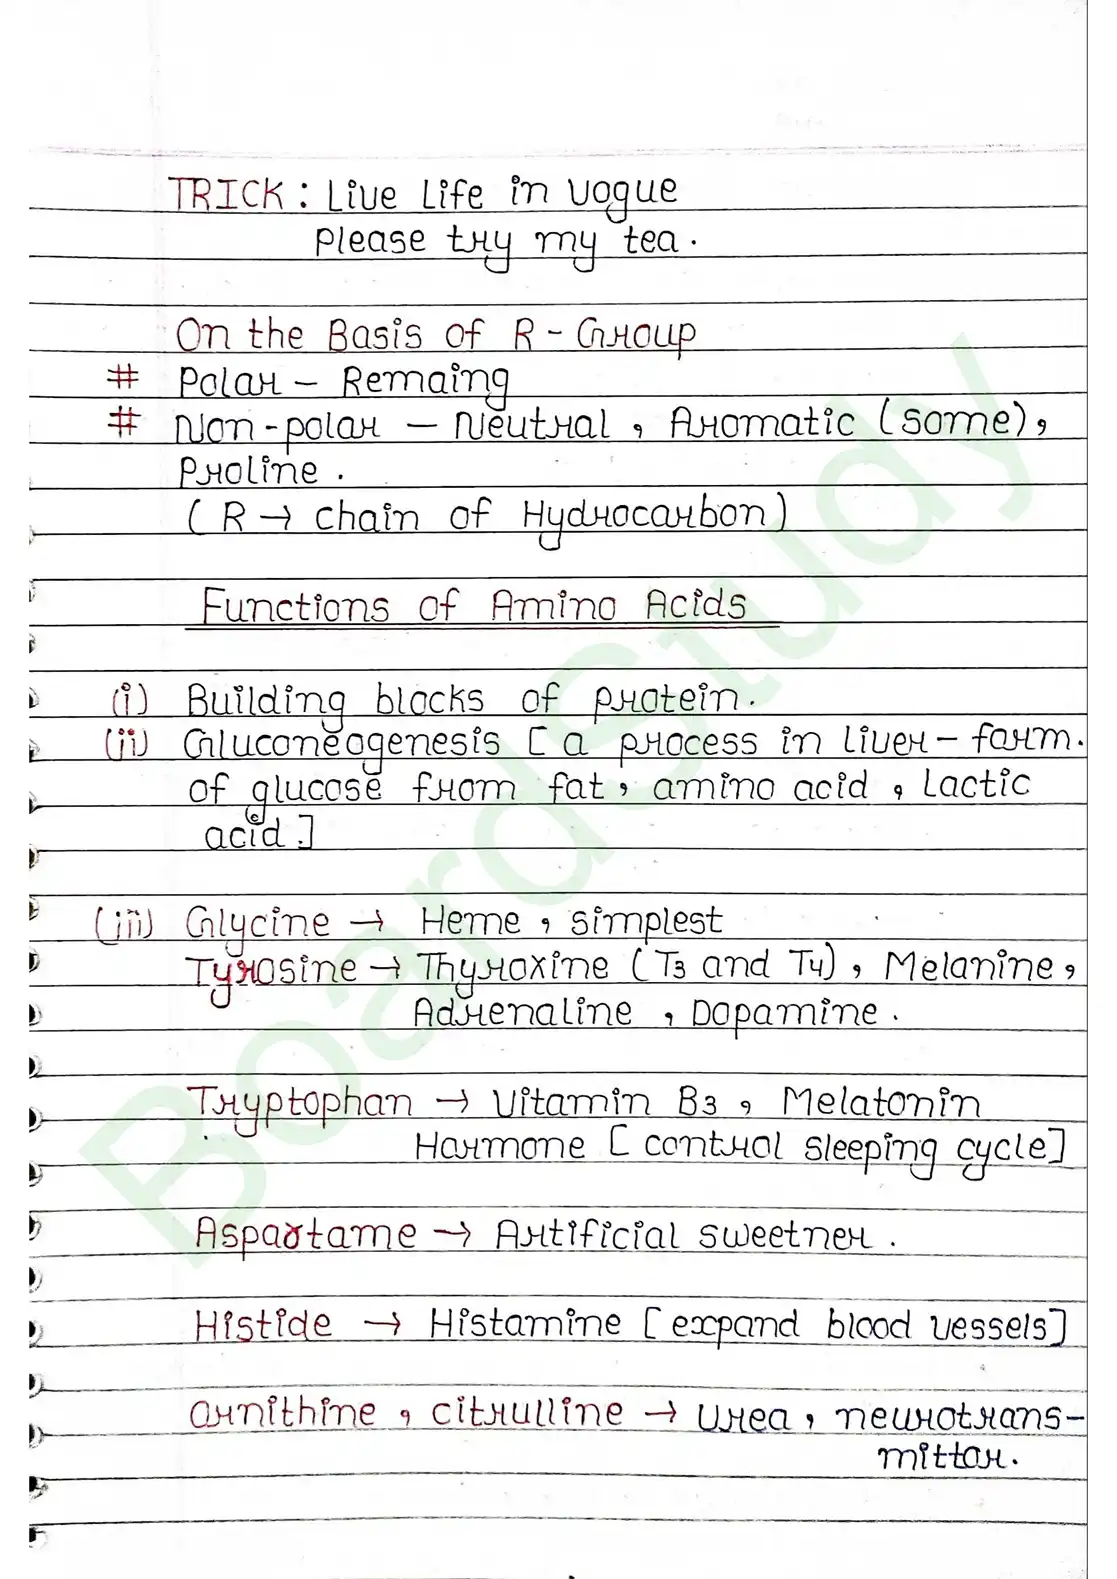 TRICK : Live Life in vogue
Please try my tea.
On the Basis of R - Group
# Polar - Remaing
# Non-polar - Neutral, Aromatic (some),
Proline.
(R → chain of Hydrocarbon)
Functions of Amino Acids
(i) Building blocks of protein.
(ii) Gluconeogenesis [a process in liver - form.
of glucose from fat, amino acid, Lactic
acid.]
(iii) Glycine → Heme, simplest
Tyrosine → Thyroxine (T3 and T4), Melanine,
Adrenaline, Dopamine.
Tryptophan → Vitamin B3, Melatonin
Harmone [control sleeping cycle]
Aspartame → Artificial sweetner.
Histide → Histamine [expand blood vessels]
Ornithine, citrulline → Urea, neurotrans-
mittor.
BoardStudy